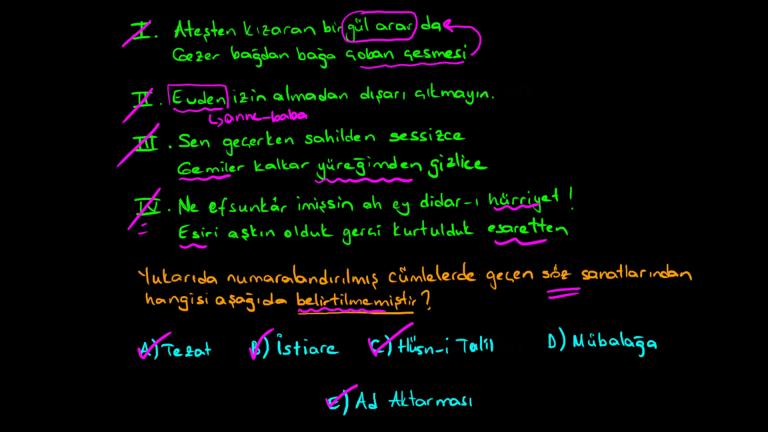 I. Ateşten kızaran bir gül arar da
Gezer bağdan bağa çoban çeşmesi
II. Evden izin almadan dışarı çıkmayın.
↳anne-baba
III. Sen geçerken sahilden sessizce
Gemiler kalkar yüreğimden gizlice
IV. Ne efsunkâr imişsin ah ey didar-ı hürriyet!
Esiri aşkın olduk gerçi kurtulduk esaretten
Yukarıda numaralandırılmış cümlelerde geçen söz sanatlarından
hangisi aşağıda belirtilmemiştir?
A) Tezat B) İstiare C) Hüsn-i Talil D) Mübalağa
E) Ad Aktarması